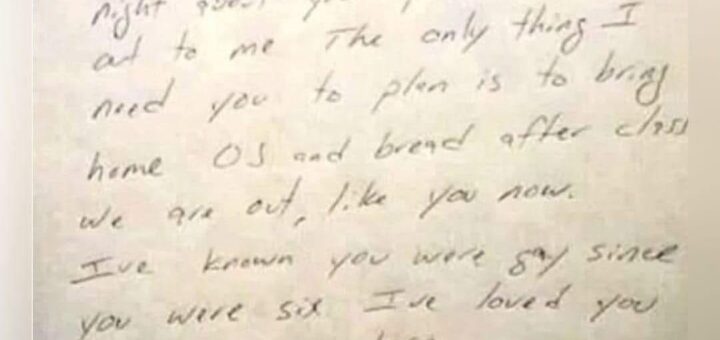 night about
out to me The only thing I
need you to plan is to bring
home OJ and bread after class
We are out, like you now.
I've known you were gay since
you were six I've loved you